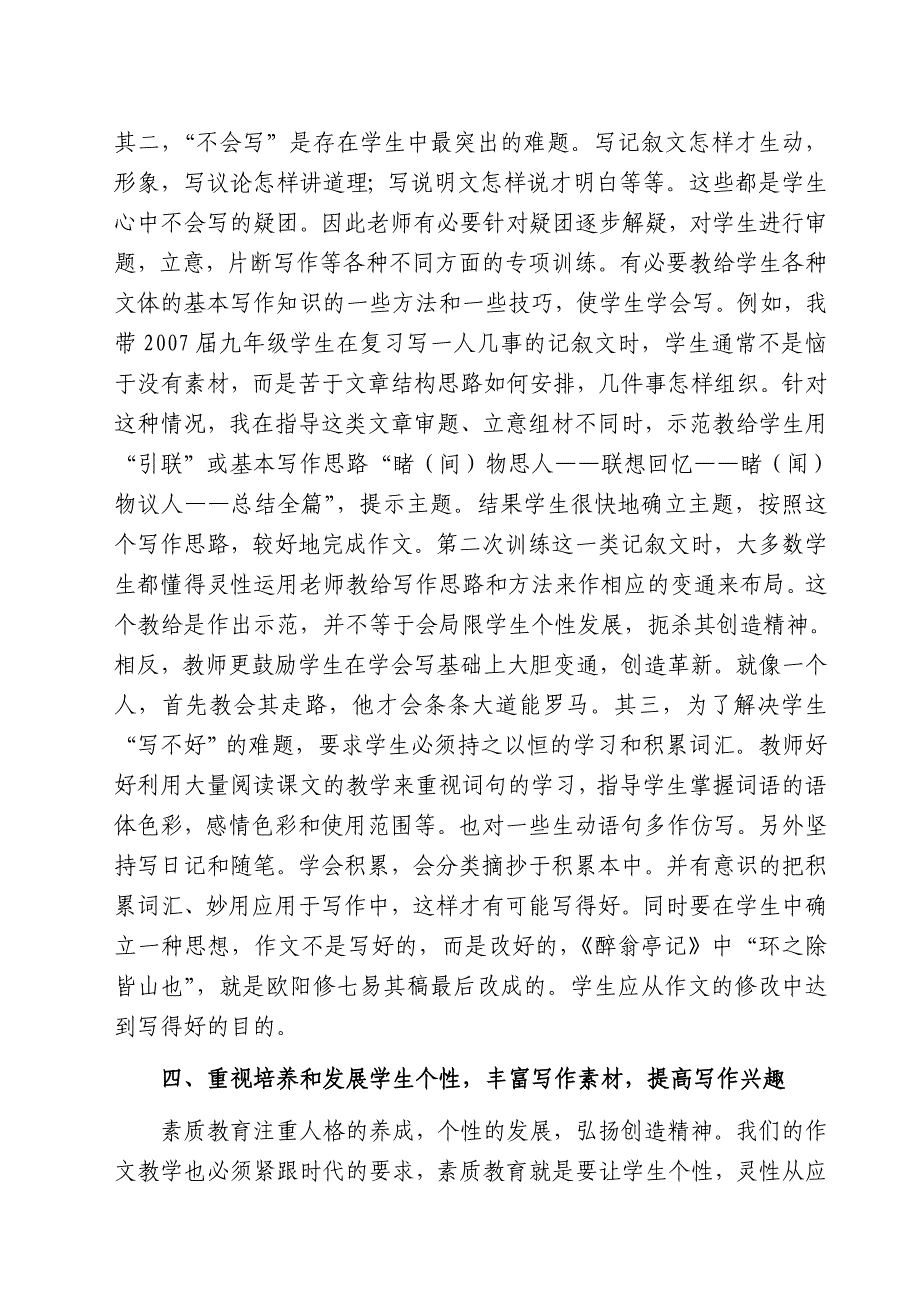 其二，“不会写”是存在学生中最突出的难题。写记叙文怎样才生动，
形象，写议论怎样讲道理；写说明文怎样说才明白等等。这些都是学生
心中不会写的疑团。因此老师有必要针对疑团逐步解疑，对学生进行审
题，立意，片断写作等各种不同方面的专项训练。有必要教给学生各种
文体的基本写作知识的一些方法和一些技巧，使学生学会写。例如，我
带 2007 届九年级学生在复习写一人几事的记叙文时，学生通常不是恼
于没有素材，而是苦于文章结构思路如何安排，几件事怎样组织。针对
这种情况，我在指导这类文章审题、立意组材不同时，示范教给学生用
“引联”或基本写作思路“睹（间）物思人——联想回忆——睹（闻）
物议人——总结全篇”，提示主题。结果学生很快地确立主题，按照这
个写作思路，较好地完成作文。第二次训练这一类记叙文时，大多数学
生都懂得灵性运用老师教给写作思路和方法来作相应的变通来布局。这
个教给是作出示范，并不等于会局限学生个性发展，扼杀其创造精神。
相反，教师更鼓励学生在学会写基础上大胆变通，创造革新。就像一个
人，首先教会其走路，他才会条条大道能罗马。其三，为了解决学生
“写不好”的难题，要求学生必须持之以恒的学习和积累词汇。教师好
好利用大量阅读课文的教学来重视词句的学习，指导学生掌握词语的语
体色彩，感情色彩和使用范围等。也对一些生动语句多作仿写。另外坚
持写日记和随笔。学会积累，会分类摘抄于积累本中。并有意识的把积
累词汇、妙用应用于写作中，这样才有可能写得好。同时要在学生中确
立一种思想，作文不是写好的，而是改好的，《醉翁亭记》中“环之除
皆山也”，就是欧阳修七易其稿最后改成的。学生应从作文的修改中达
到写得好的目的。
四、重视培养和发展学生个性，丰富写作素材，提高写作兴趣
素质教育注重人格的养成，个性的发展，弘扬创造精神。我们的作
文教学也必须紧跟时代的要求，素质教育就是要让学生个性，灵性从应